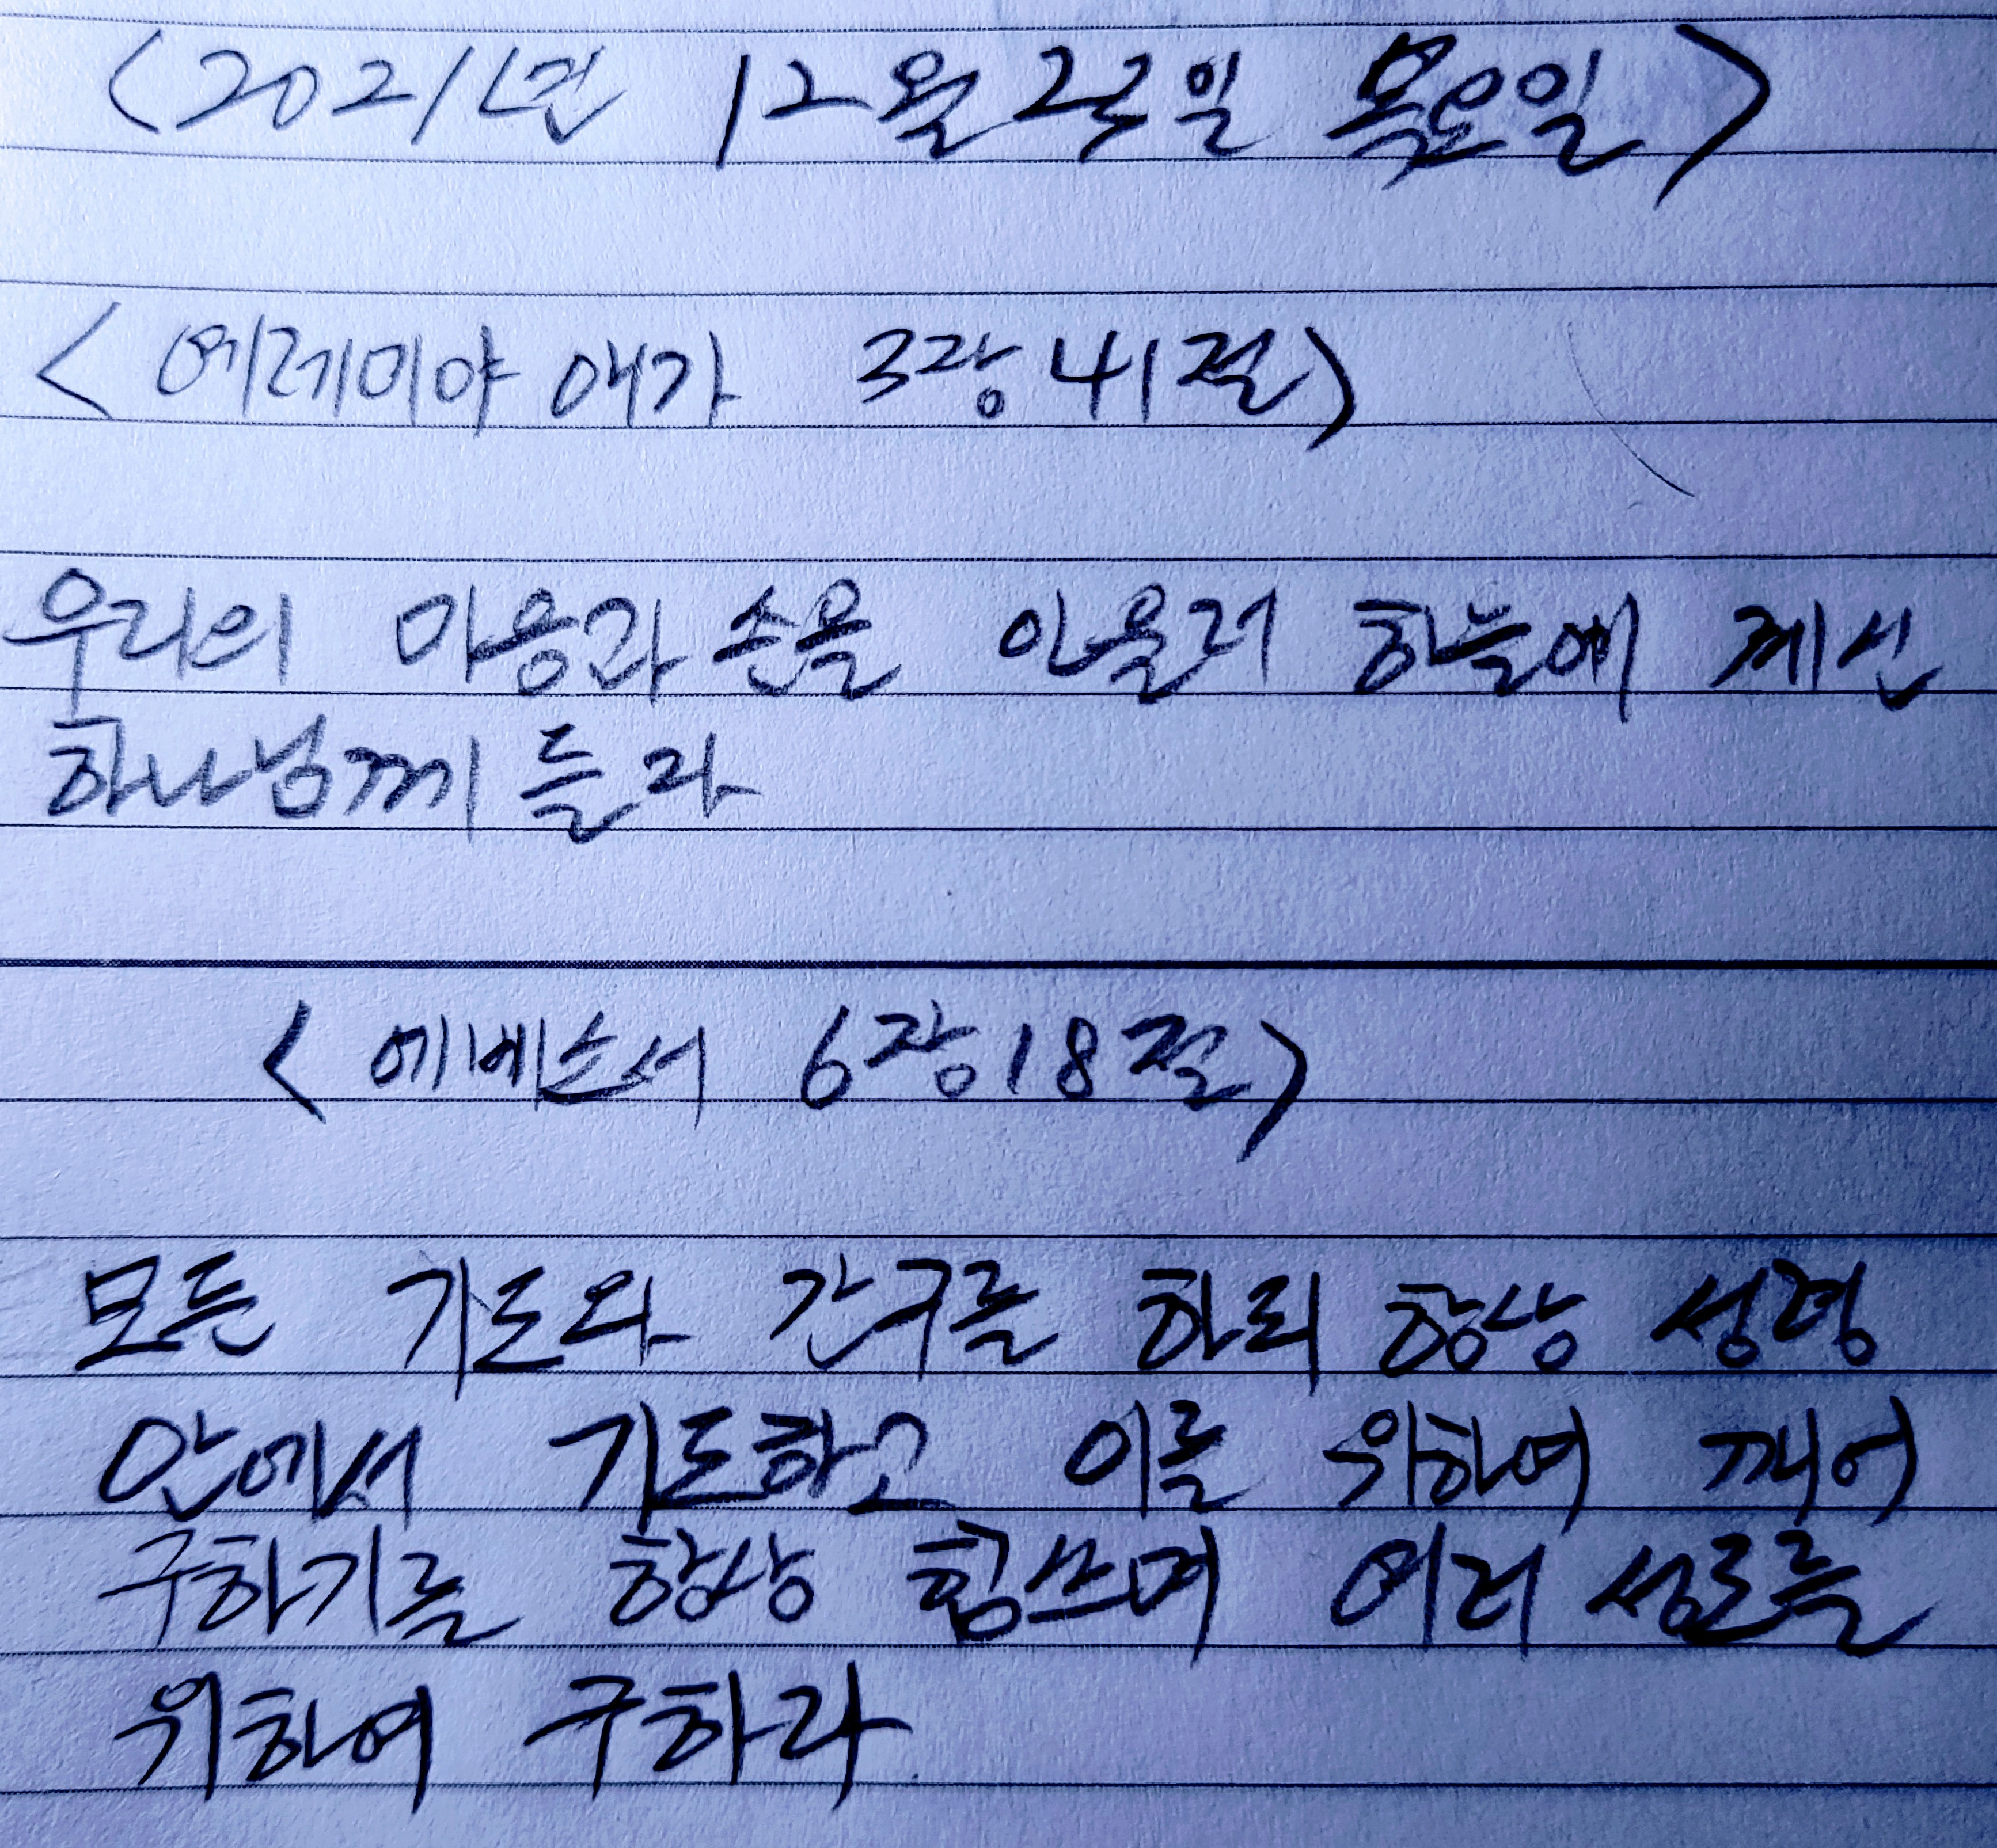 <2021년 12월 23일 목요일>
<예레미야 애가 3장 41절>
우리의 마음과 손을 아울러 하늘에 계신
하나님께 들자
<에베소서 6장 18절>
모든 기도와 간구를 하되 항상 성령
안에서 기도하고 이를 위하여 깨어
구하기를 항상 힘쓰며 여러 성도를
위하여 구하라